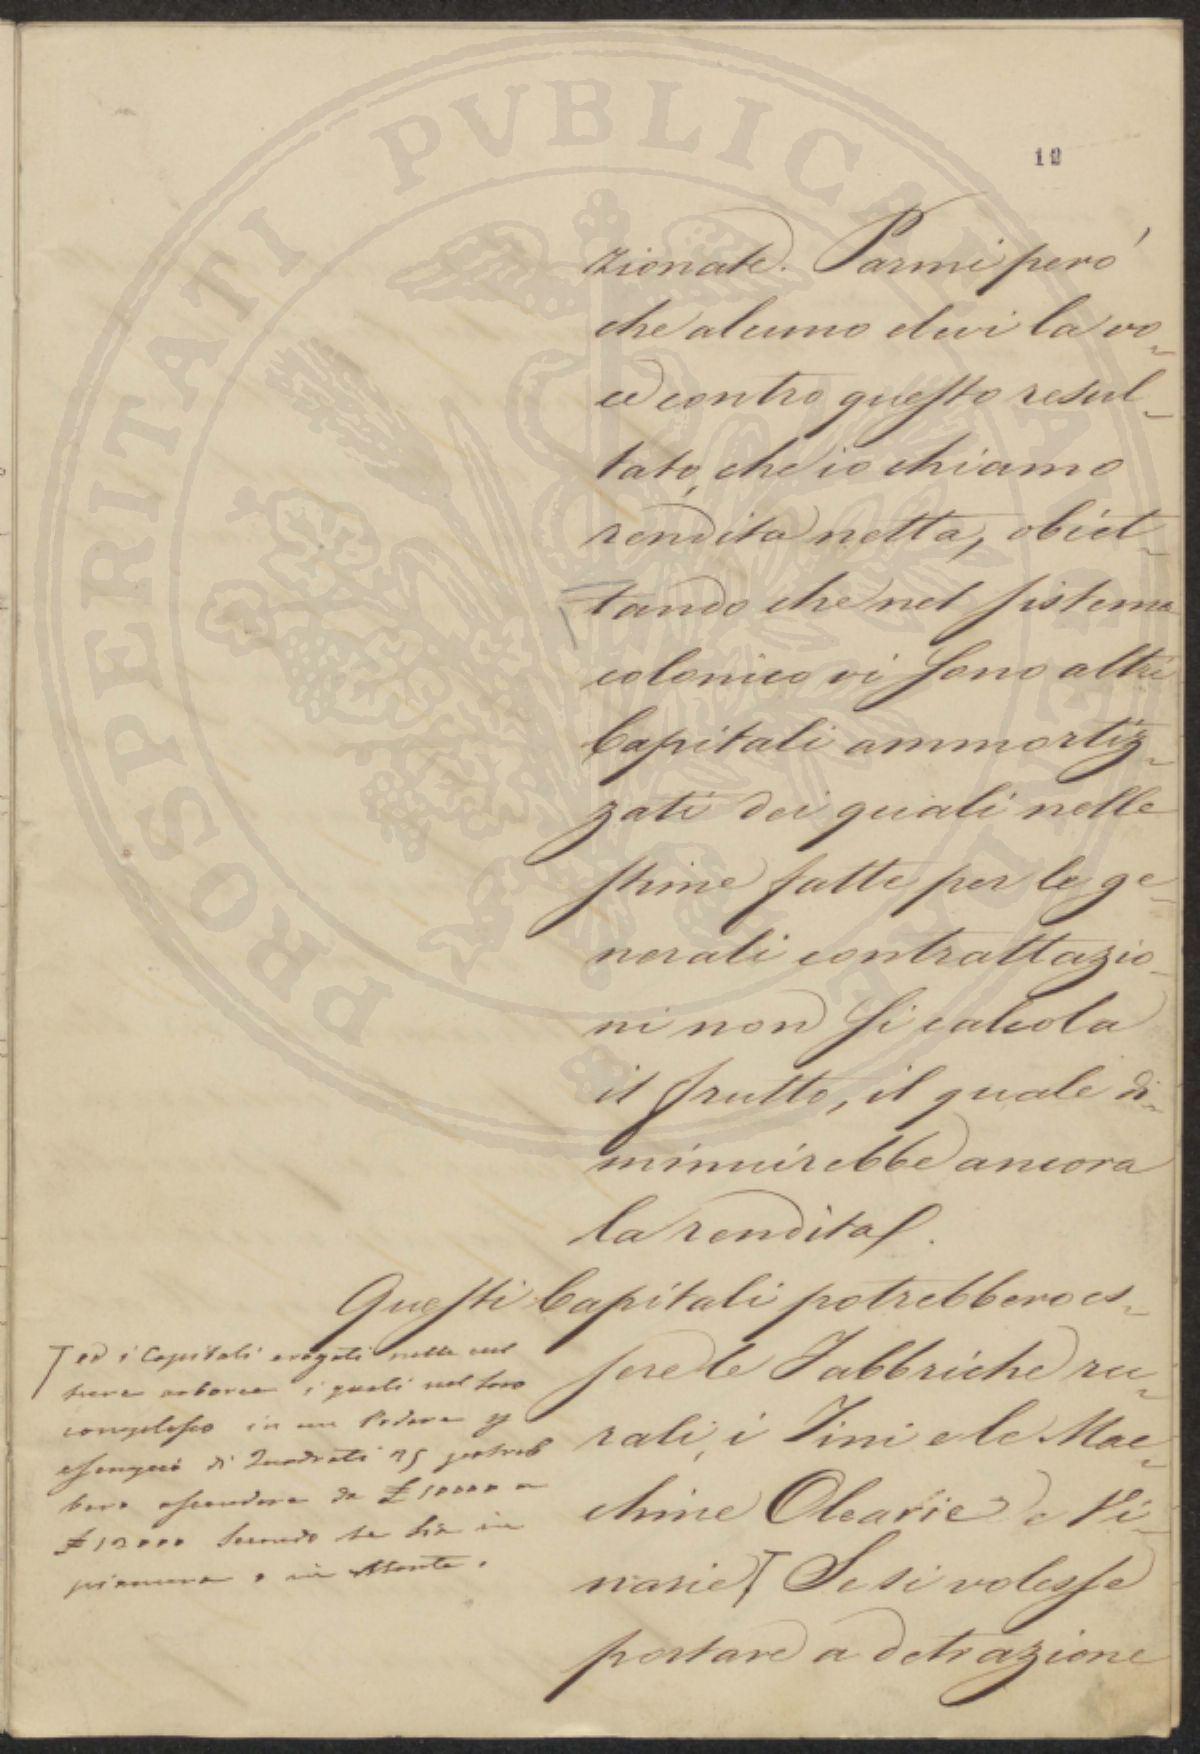 PROSPERITATI PVBLICAE AVGENDAE
12
zionate. Parmi però
che alcuno elevi la vo-
ce contro questo resul-
tato, che io chiamo
rendita netta, obiet-
tando che nel sistema
colonico vi sono altri
Capitali ammortiz-
zati dei quali nelle
stime fatte per le ge-
nerali contrattazio-
ni non si calcola
il frutto, il quale di-
minuirebbe ancora
la rendita.
Questi Capitali potrebbero es-
sere le Fabbriche ru-
rali, i Tini e le Mac-
chine Olearie e Vi-
narie Se si volesse
portare a detrazione
ed i Capitali erogati nella cul
tura arborea i quali nel loro
complesso in un Podere p
esempio di Quadrati 25 potreb
bero ascendere da £ 10000 a
£ 12000 secondo se sia in
pianura o in Monte.